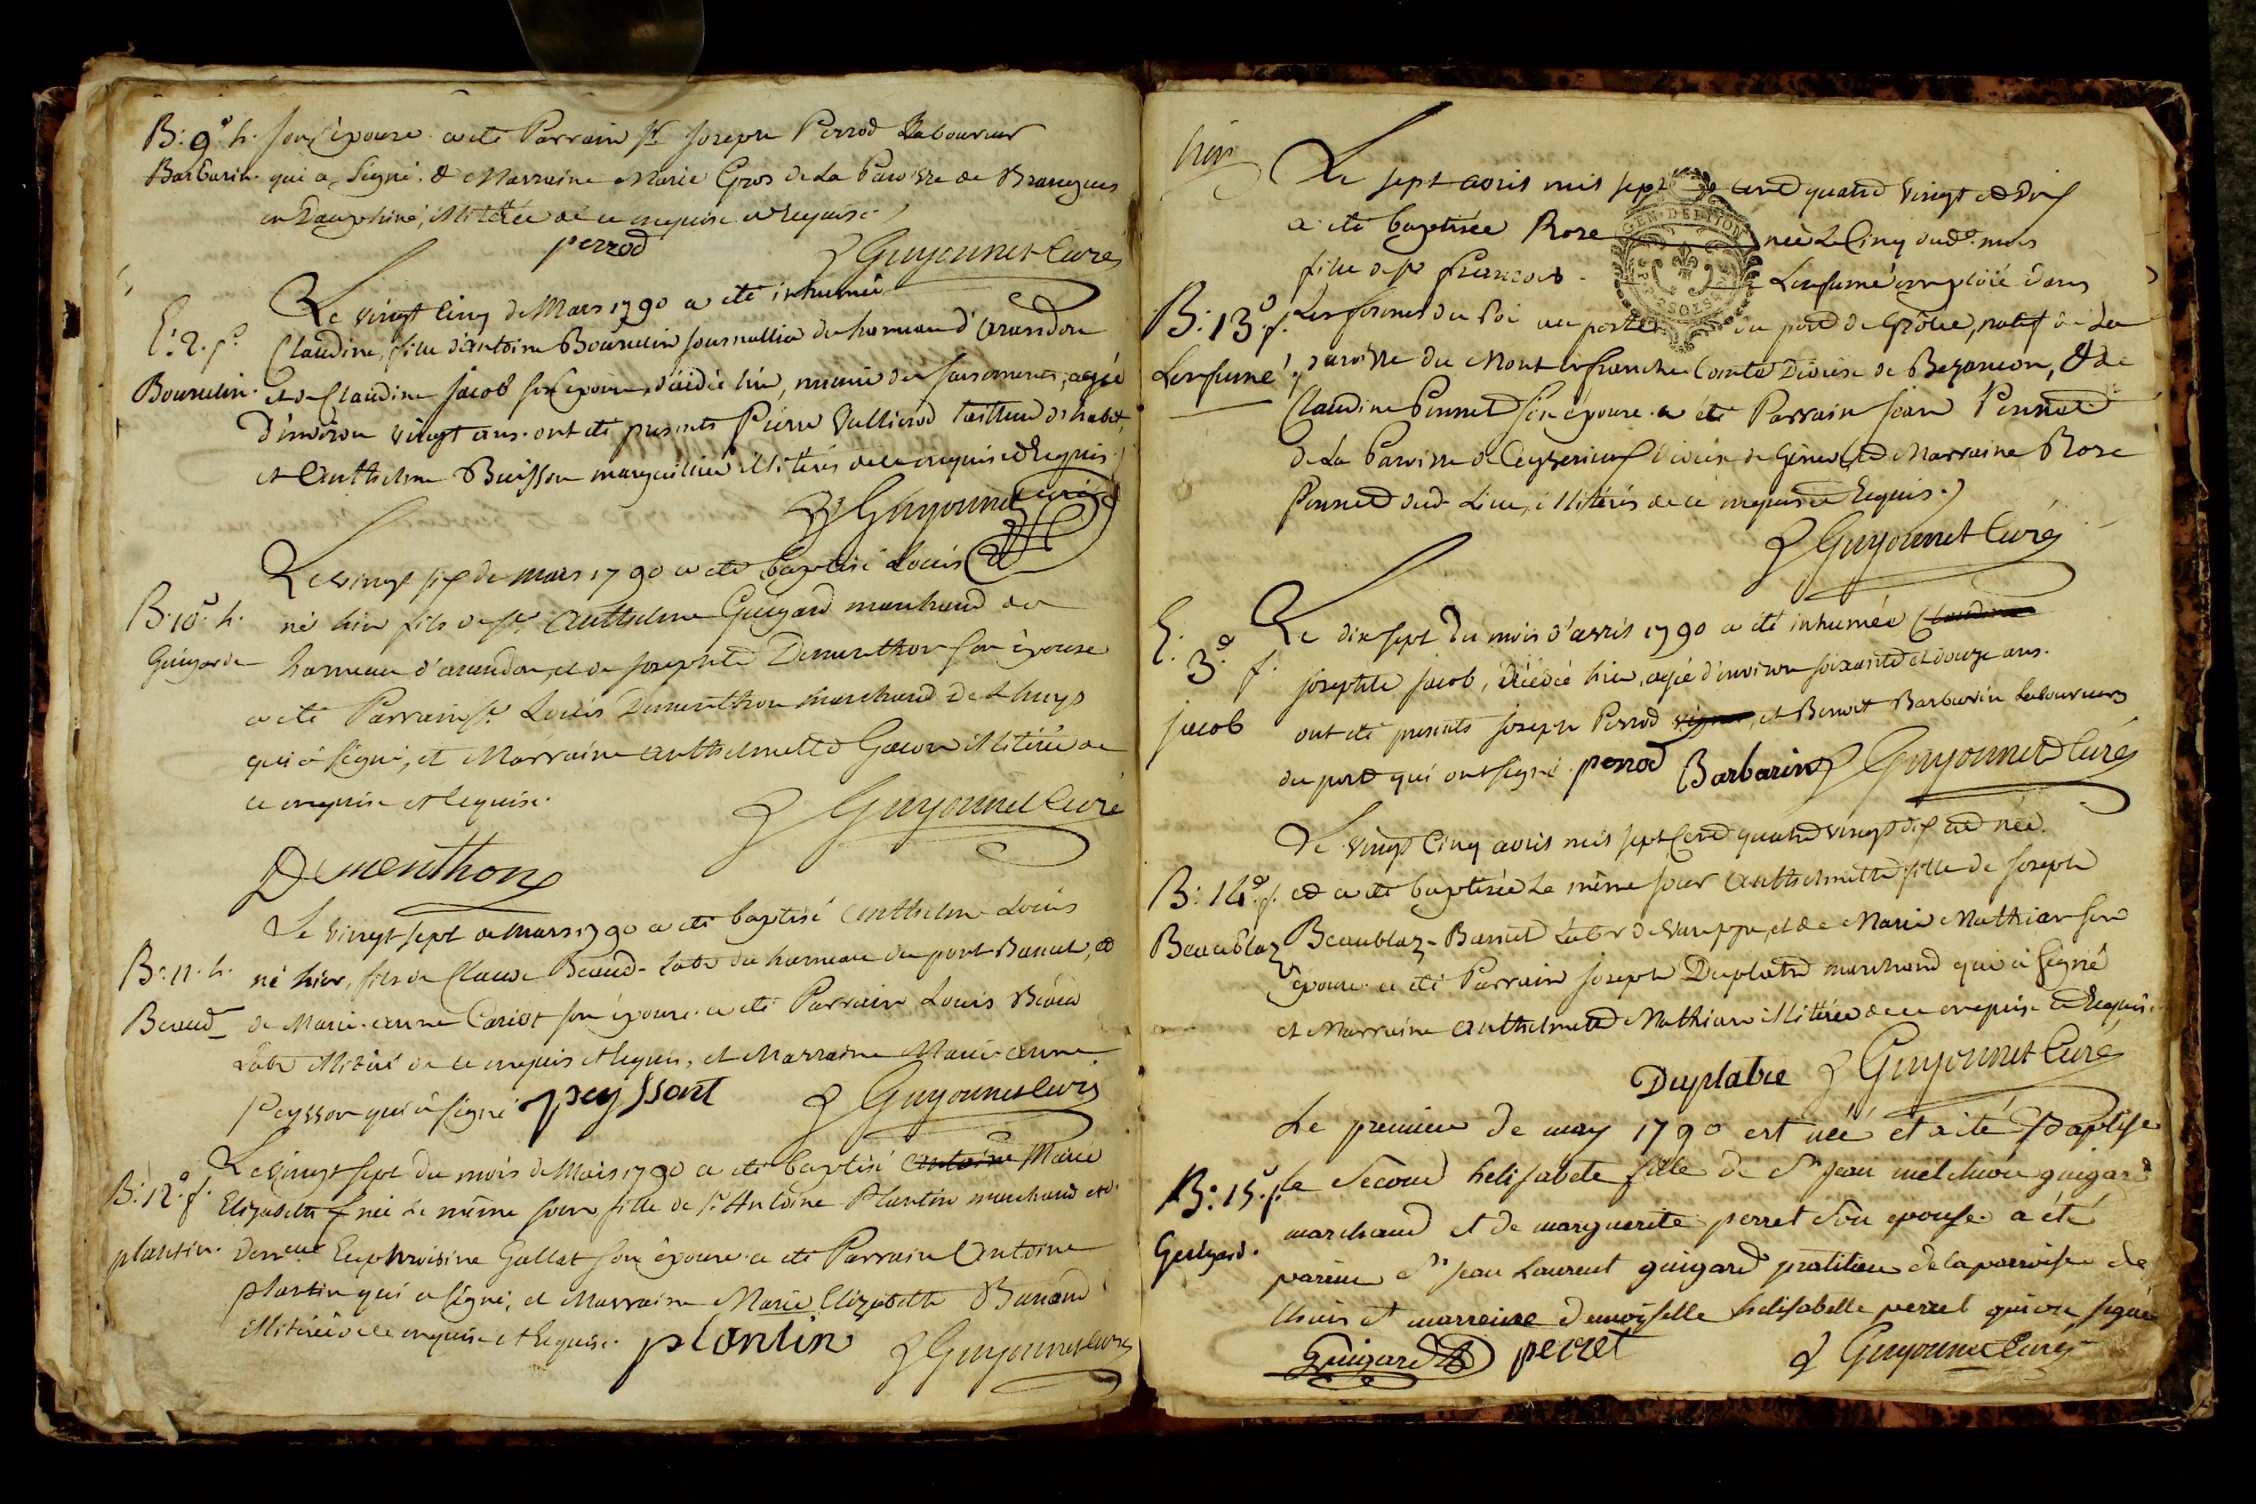 B: 9.° h. son épouse. a été Parrain Sr Joseph Perrod Laboureur
Barbarin. qui a signé. & Marraine Marie Gros de La Paroisse de Brangues
en Dauphiné, illitérée de ce enquise et requise.
perrod Guyonnet Curé
Le vingt cinq de Mars 1790 a été inhumée
E: 2. f.° Claudine, fille d'antoine Bourdin journallier du hameau d'arandon
Bourdin. et de Claudine jacob son épouse, décédée hier, munie des sacrements, agée
d'environ vingt ans. ont été presents Pierre Vullierod tailleur d'habit,
et Anthelme Buisson marguillier illitérés de ce enquis et Requis.
Guyonnet Curé
Le vingt six de mars 1790 a été baptisé Louis
B: 10.° h. né hier fils de Sr Anthelme Guigard marchand du
Guigard hameau d'arandon, et de Josephte Dementhon son épouse
a été Parrain Sr Louis Dementhon marchand de Lhuys
qui a signé, et Marraine anthelmette illitérée de
ce enquise et requise.
Guyonnet Curé
Dementhon
Le vingt sept de mars 1790 a été baptisé Anthelme Louis
B: 11. h. né hier, fils de Claude Beaud Labr du hameau du port
Beaud de Marie anne son épouse. a été Parrain Louis Beaud
Labr illitéré de ce enquis et requis, et Marraine Marie anne
Peysson qui a signé peyssont Guyonnet Curé
Le vingt sept du mois de Mars 1790 a été baptisé antoine Marie
B: 12.° f. Elizabeth née le même jour fille de Sr Antoine Plantin marchand et de
plantin. Euphroisine Gallat son épouse. a été Parrain Antoine
plantin qui a signé, et Marraine Marie Elizabeth
illitérée de ce enquise et requise. plantin Guyonnet Curé
Le sept avril mil sept cend quatre vingt et dix
a été baptisée Rose née Le Cinq dud. mois
fille de Sr francois Lenfumé emploié dans
B: 13.° f. Les fermes du Roi au poste du port de Grolée, natif de La
Lenfumé paroisse du Mont en franche Comté Diocèse de Bezancon, & de
Claudine Pennet son épouse. a été Parrain jean Pennet
de La Paroisse de Ceyzerieux Diocèse de Genève, et Marraine Rose
Pennet dud. Lieu, illitérés de ce enquis et Requis.
Guyonnet Curé
E. Le dix sept du mois d'avril 1790 a été inhumée Claudine
3.° f. josephte jacob, décédée hier, agée d'environ soixante et douze ans.
jacob ont été presents joseph Perrod signé et Benoit Barbarin Laboureurs
du port qui ont signé. perrod Barbarin Guyonnet Curé
Le vingt Cinq avril mil sept Cend quatre vingt dix est née
B: 14.° f. et a été baptisée Le même jour Anthelmette fille de Joseph
Beaublaz Beaublaz Labr de et de Marie Mathian son
épouse. a été Parrain joseph Duplatre marchand qui a signé
et Marraine anthelmette Mathian illitérée de ce enquise et Requise.
Duplatre Guyonnet Curé
Le premier de may 1790 est née et a été Baptise
B: 15.° f. le second helisabete fille de Sr jean melchior guigard
Guigard. marchand et de marguerite perret son epouse a été
parein Sr jean Laurent guigard pratitien de la parroisse de
Lhuis et marreine demoiselle helisabelle perret qui on signé
Guigard perret Guyonnet Curé